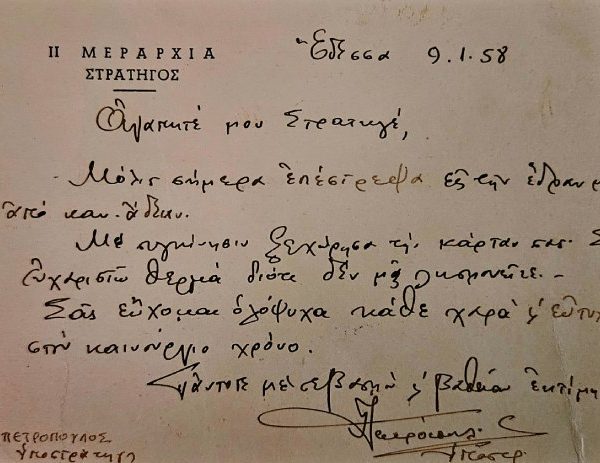 ΙΙ ΜΕΡΑΡΧΙΑ
ΣΤΡΑΤΗΓΟΣ
Ἔδεσσα 9.1.58
Ἀγαπητέ μου Στρατηγέ,
Μόλις σήμερα ἐπέστρεψα εἰς τὴν ἕδραν
ἀπὸ καν. ἄδειαν.
Μὲ συγκίνησιν ξεχώρησα τὴν κάρταν σας. Σ
εὐχαριστῶ θερμὰ διότι δὲν μᾶς λησμονεῖτε.-
Σᾶς εὔχομαι ὁλόψυχα κάθε χαρὰ & εὐτυ
στὸν καινούργιο χρόνο.
Πάντοτε μὲ σεβασμὸ & βαθεῖα ἐκτίμη
ΠΕΤΡΟΠΟΥΛΟΣ
Υποστράτηγος
Υποστρ.